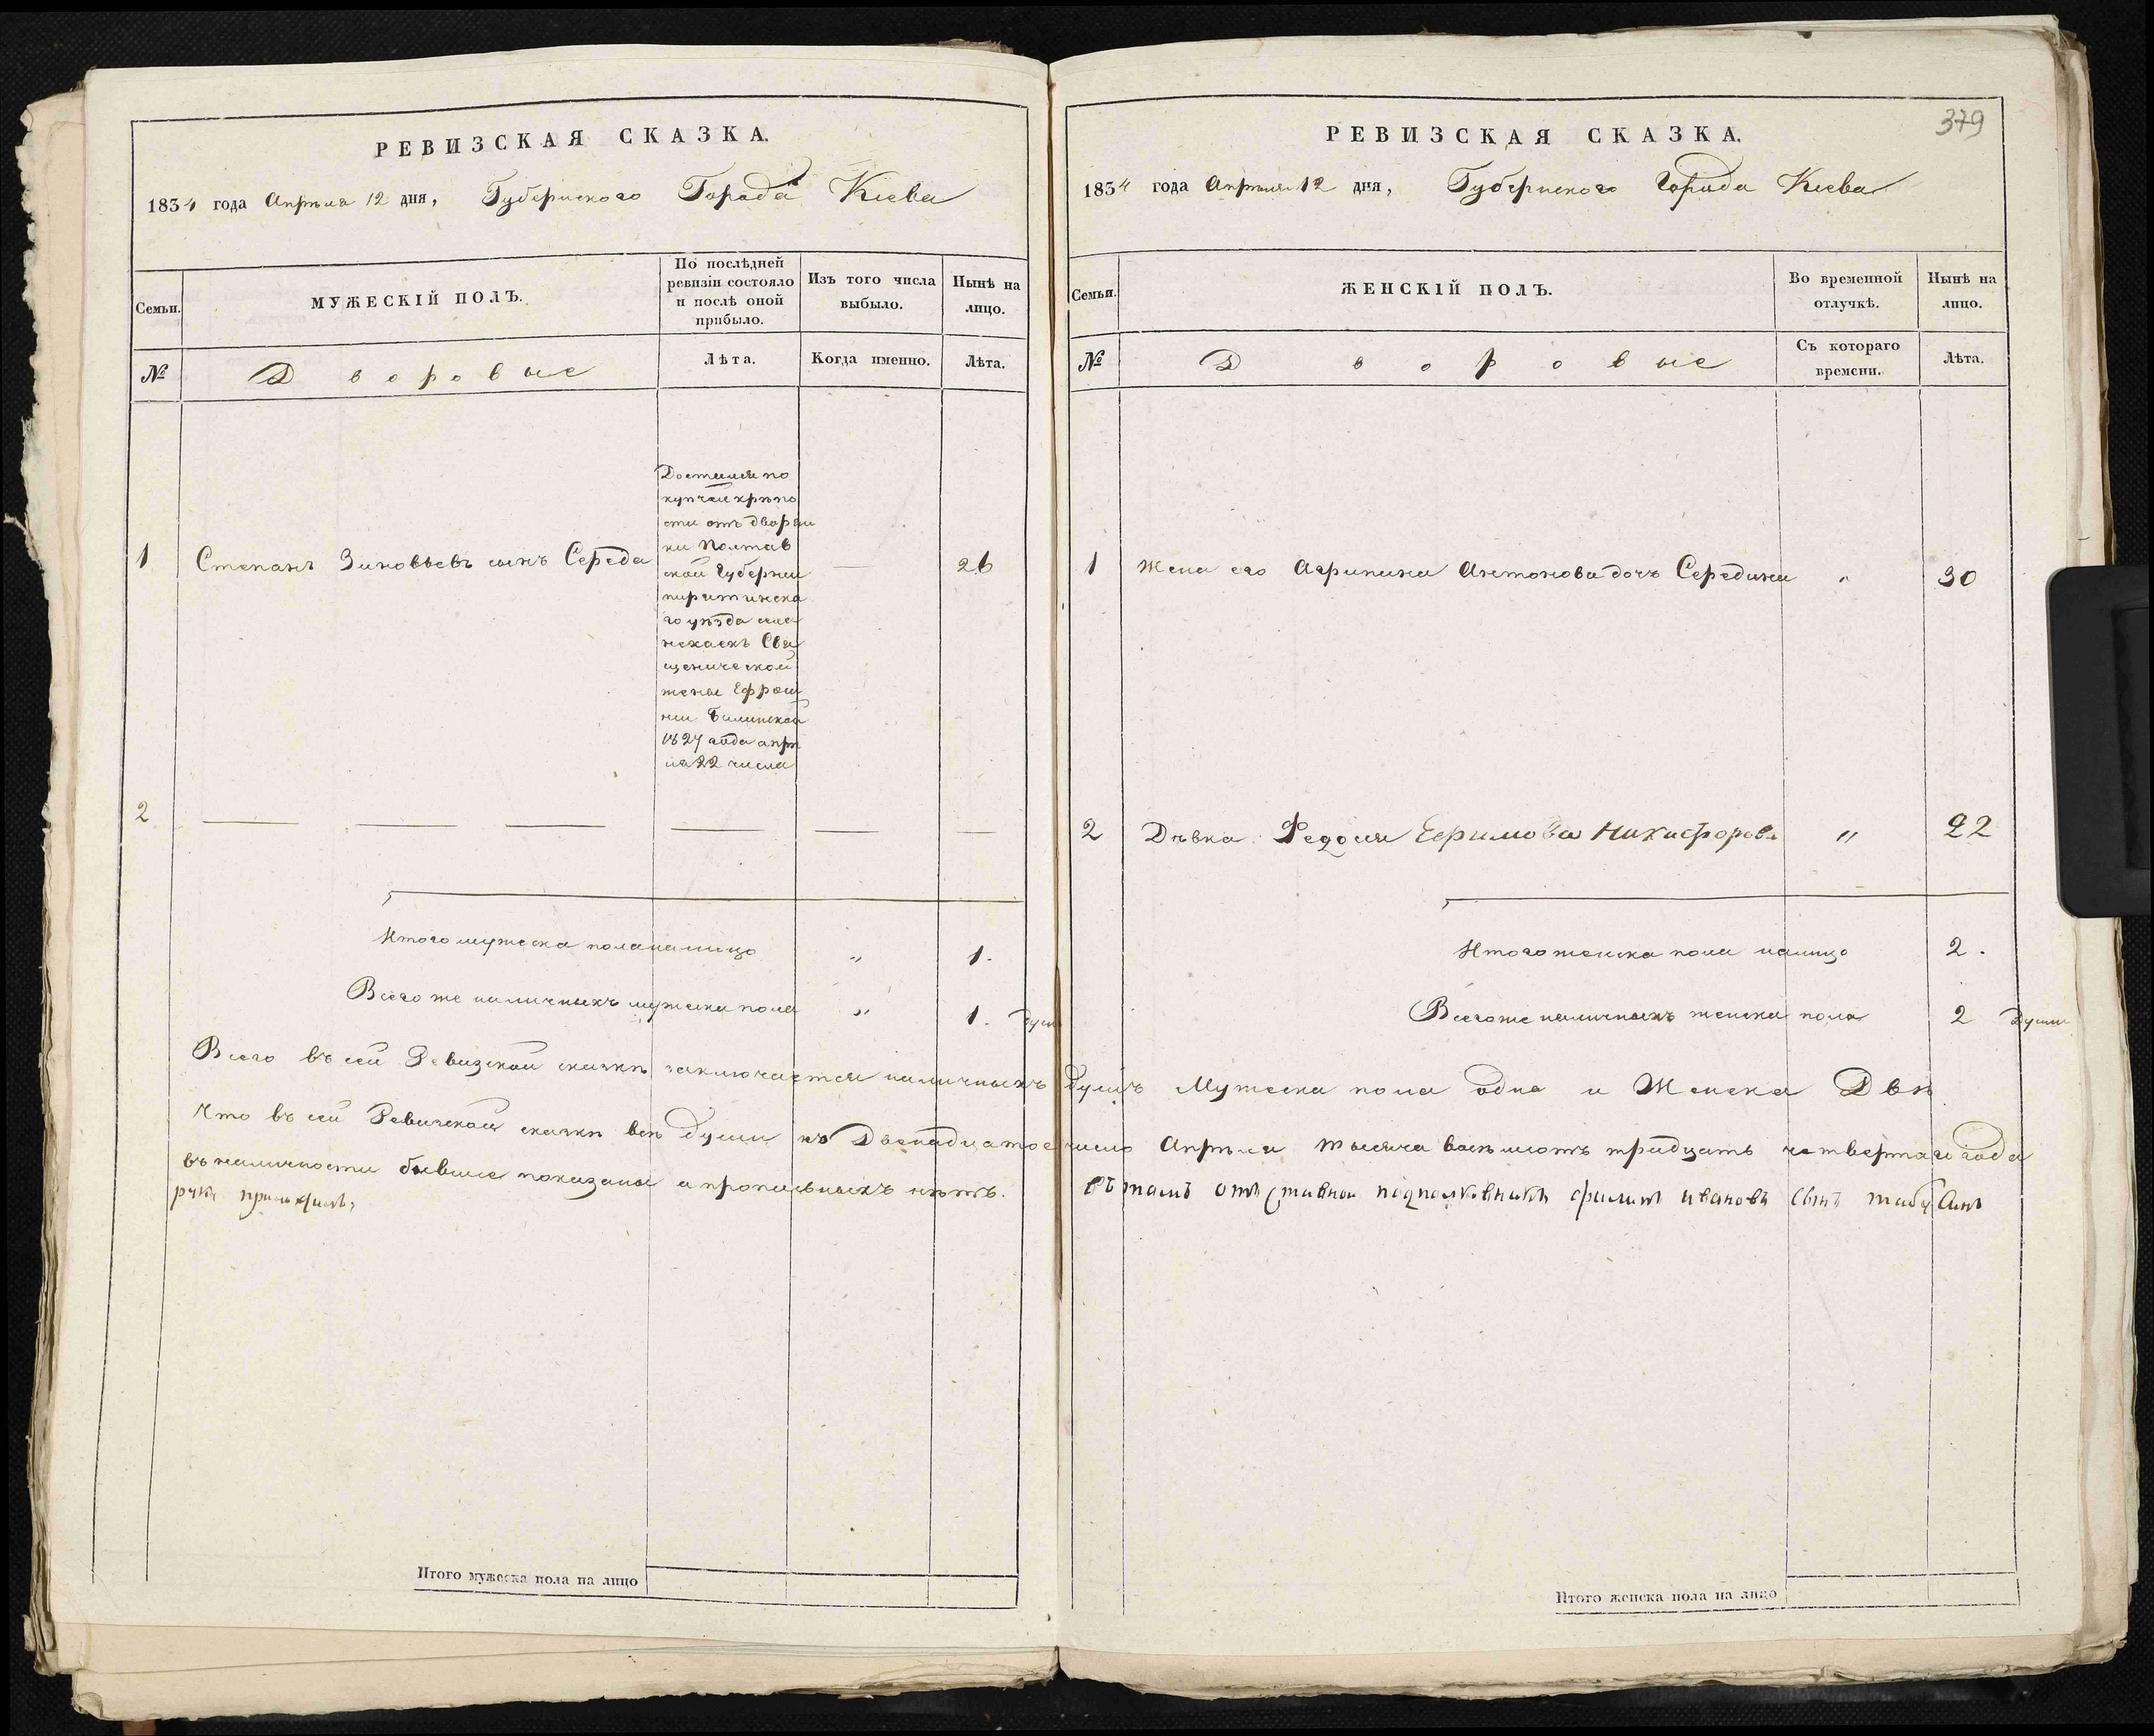 РЕВИЗСКАЯ СКАЗКА.
1834 года Апрѣля 12 дня, Губернского Города Кіева
Семьи.
МУЖЕСКІЙ ПОЛЪ.
По послѣдней
ревизіи состояло
и послѣ оной
прибыло.
Изъ того числа
выбыло.
Нынѣ на
лицо.
№
Дворовые
Лѣта.
Когда именно.
Лѣта.
Достался по
купчей крѣпо
сти отъ дворян
ки Полтав
ской Губернии
пирятинска
го уѣзда
Свя
щенической
жены Ефроси
нии Билинской
1827 года апрѣ
ля 22 числа
1 Степанъ Зиновьевъ сынъ Середа — 26
2 — — — — — —
Итого мужеска пола налицо " 1.
Всего же наличныхъ мужеска пола " 1. душа
РЕВИЗСКАЯ СКАЗКА.
379
1834 года Апрѣля 12 дня, Губернского Города Кіева
Семьи.
ЖЕНСКІЙ ПОЛЪ.
Во временной
отлучкѣ.
Нынѣ на
лицо.
№
Дворовые
Съ котораго
времени.
Лѣта.
1 Жена его Агрипина Антонова дочъ Середина " 30
2 Дѣвка Федосия Ефимова Никифорова " 22
Итого женска пола налицо 2.
Всего же наличныхъ женска пола 2 души
Всего въ сей Ревизской сказкѣ заключается наличныхъ душъ Мужеска пола одна и Женска Двѣ
Что въ сей Ревизской сказкѣ всѣ души къ Двенадцатое число Апрѣля тысяча восемьсотъ тридцать четвертаго года
въ наличности бывшие показаны а прописныхъ нѣтъ. Въ томъ отставной подполковникъ филипъ ивановъ сынъ
руку приложилъ,
Итого мужеска пола на лицо
Итого женска пола на лицо